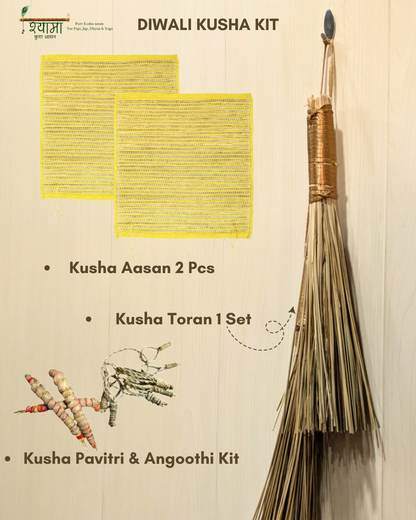 श्यामा
कुशा आसन
Pure Kusha aasan
For Puja, Jap, Dhyna & Yoga
DIWALI KUSHA KIT
• Kusha Aasan 2 Pcs
• Kusha Toran 1 Set
• Kusha Pavitri & Angoothi Kit